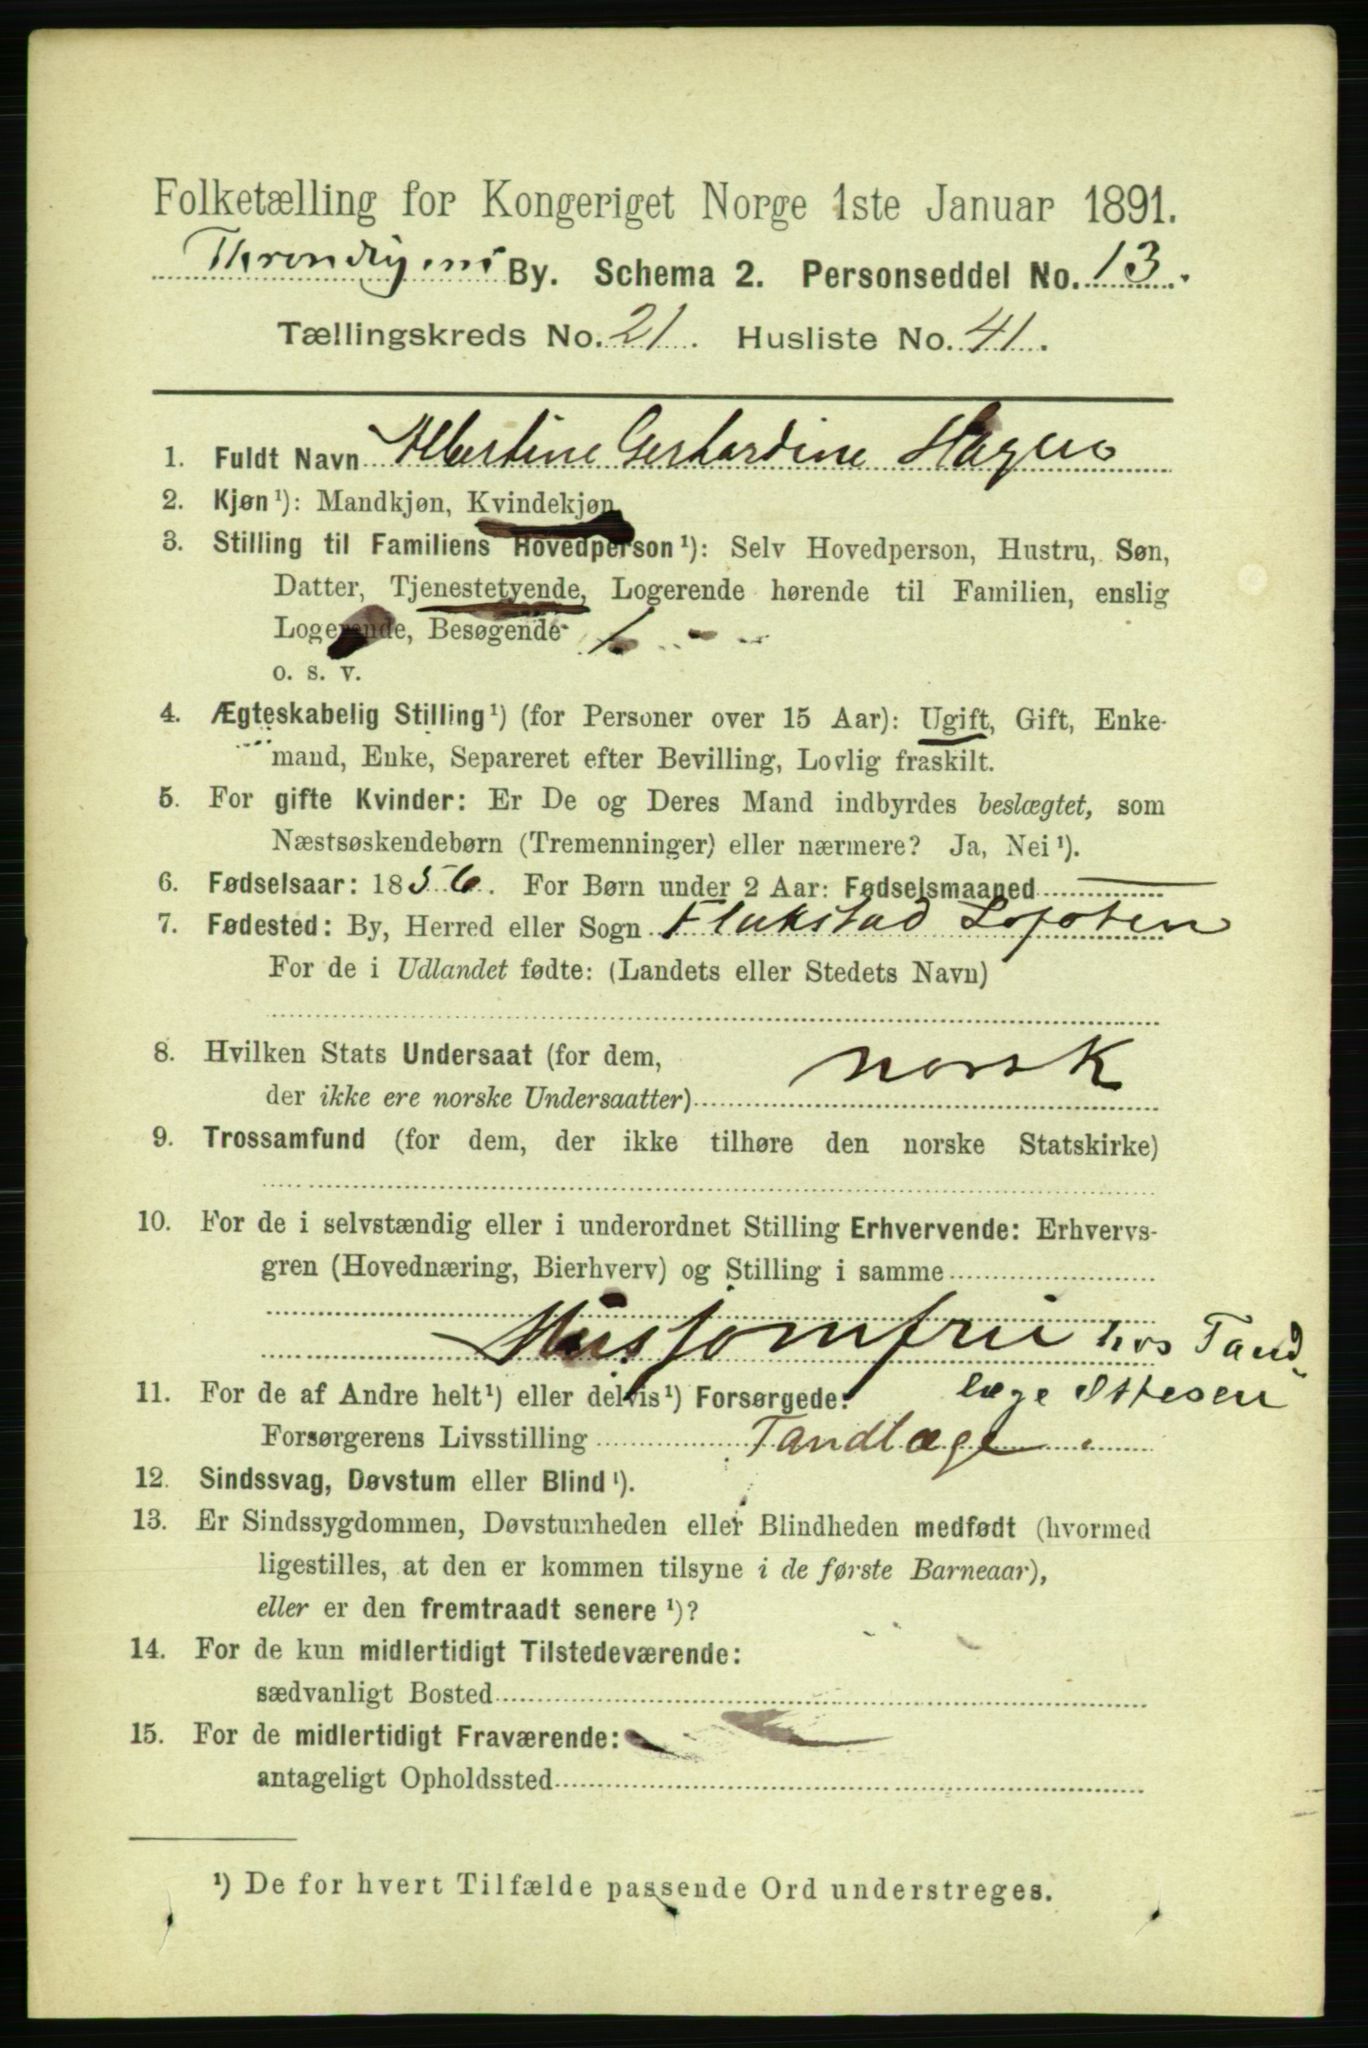 Folketælling for Kongeriget Norge 1ste Januar 1891.
Throndhjems By. Schema 2. Personseddel No. 13.
Tællingskreds No. 21. Husliste No. 41.
1. Fuldt Navn Albertine Gerhardine Hagen
2. Kjøn¹): Mandkjøn, Kvindekjøn
3. Stilling til Familiens Hovedperson¹): Selv Hovedperson, Hustru, Søn,
Datter, Tjenestetyende, Logerende hørende til Familien, enslig
Logerende, Besøgende
o. s. v.
4. Ægteskabelig Stilling¹) (for Personer over 15 Aar): Ugift, Gift, Enke-
mand, Enke, Separeret efter Bevilling, Lovlig fraskilt.
5. For gifte Kvinder: Er De og Deres Mand indbyrdes beslægtet, som
Næstsøskendebørn (Tremenninger) eller nærmere? Ja, Nei¹).
6. Fødselsaar: 1856. For Børn under 2 Aar: Fødselsmaaned
7. Fødested: By, Herred eller Sogn Flakstad Lofoten
For de i Udlandet fødte: (Landets eller Stedets Navn)
8. Hvilken Stats Undersaat (for dem,
der ikke ere norske Undersaatter) norsk
9. Trossamfund (for dem, der ikke tilhøre den norske Statskirke)
10. For de i selvstændig eller i underordnet Stilling Erhvervende: Erhvervs-
gren (Hovednæring, Bierhverv) og Stilling i samme
Husjomfru hos Tand-
læge Ottesen
11. For de af Andre helt¹) eller delvis¹) Forsørgede:
Forsørgerens Livsstilling Tandlæge.
12. Sindssvag, Døvstum eller Blind¹).
13. Er Sindssygdommen, Døvstumheden eller Blindheden medfødt (hvormed
ligestilles, at den er kommen tilsyne i de første Barneaar),
eller er den fremtraadt senere¹)?
14. For de kun midlertidigt Tilstedeværende:
sædvanligt Bosted
15. For de midlertidigt Fraværende:
antageligt Opholdssted
¹) De for hvert Tilfælde passende Ord understreges.